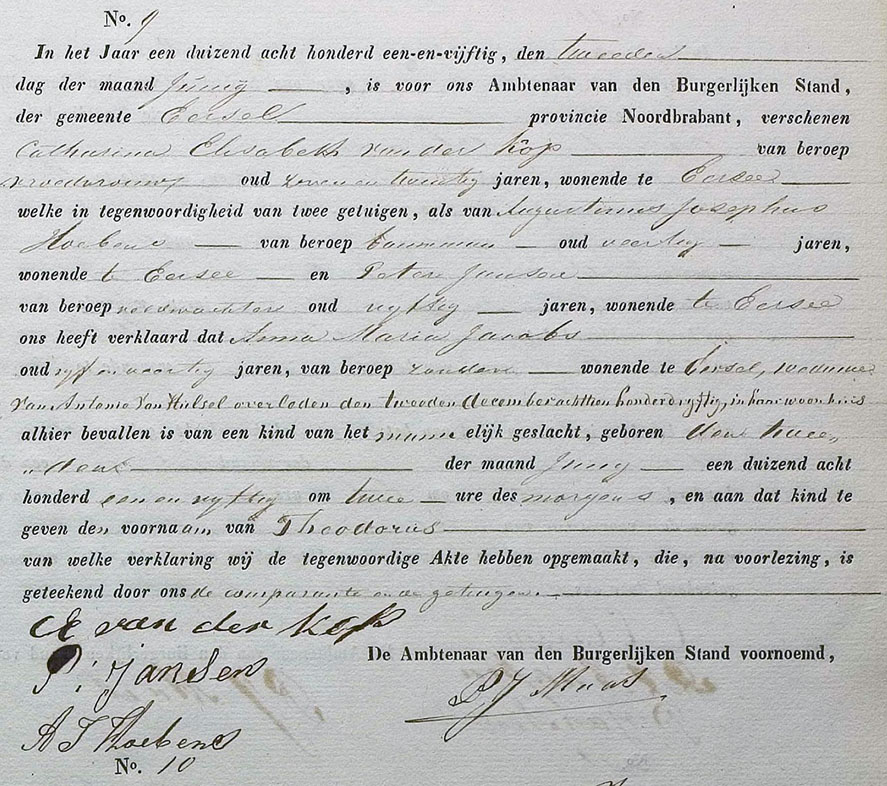 No. 9
In het Jaar een duizend acht honderd een-en-vijftig, den tweeden
dag der maand Junij, is voor ons Ambtenaar van den Burgerlijken Stand,
der gemeente Eersel provincie Noordbrabant, verschenen
Catharina Elisabeth van der Kop van beroep
vroedvrouw oud zeven en twintig jaren, wonende te Eersel
welke in tegenwoordigheid van twee getuigen, als van Augustinus Josephus
Hoebens van beroep oud veertig jaren,
wonende te Eersel en Peter Jansen
van beroep veldwachter oud vyftig jaren, wonende te Eersel
ons heeft verklaard dat Anna Maria Jacobs
oud vyf en veertig jaren, van beroep zonder wonende te Eersel, weduwe
van Antonie van Hulsel overleden den tweeden december achttien honderd vyftig, in haar woonhuis
alhier bevallen is van een kind van het mannelijk geslacht, geboren den twee„
„den der maand Junij een duizend acht
honderd een en vyftig om twee ure des morgens, en aan dat kind te
geven den voornaam van Theodorus
van welke verklaring wij de tegenwoordige Akte hebben opgemaakt, die, na voorlezing, is
geteekend door ons de comparante en de getuigen.
CE van der Kop
De Ambtenaar van den Burgerlijken Stand voornoemd,
P. Jansen
PJ Maas
A J Hoebens
No. 10